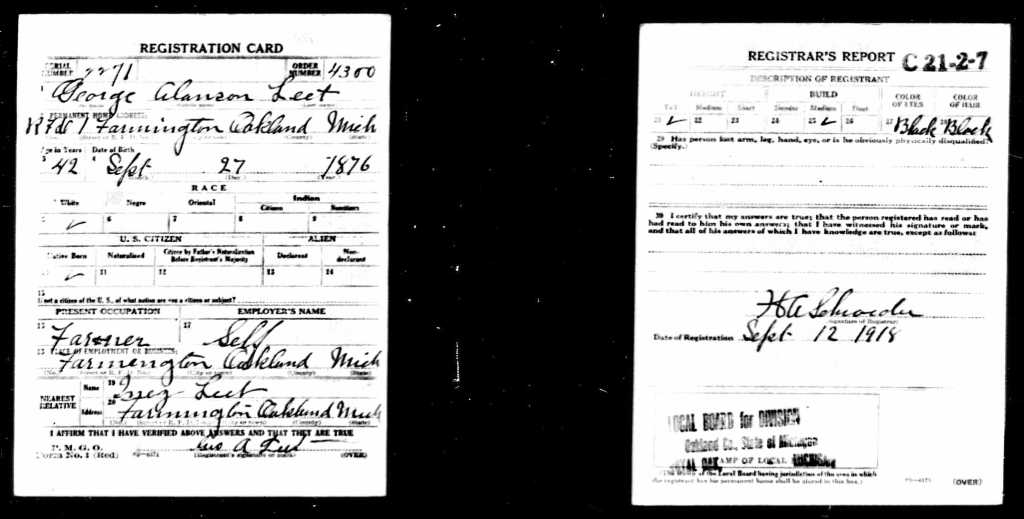 REGISTRATION CARD
SERIAL NUMBER 2271 ORDER NUMBER 4300
1 George Alanson Leet
PERMANENT HOME ADDRESS:
RFD 1 Farmington Oakland Mich
Age in Years Date of Birth
3 42 4 Sept 27 1876
(Day) (Year)
RACE
White Negro Oriental Indian
Citizen Noncitizen
5 ✓ 6 7 8 9
U. S. CITIZEN ALIEN
Native Born Naturalized Citizen by Father's Naturalization Before Registrant's Majority Declarant Non-declarant
✓ 11 12 13 14
15
If not a citizen of the U. S., of what nation are you a citizen or subject?
PRESENT OCCUPATION EMPLOYER'S NAME
16 Farmer 17 Self
18 PLACE OF EMPLOYMENT OR BUSINESS:
Farmington Oakland Mich
(No.) (Street or R. F. D. No.) (City or town) (County) (State)
NEAREST RELATIVE Name 19 Inez Leet
Address 20 Farmington Oakland Mich
I AFFIRM THAT I HAVE VERIFIED ABOVE ANSWERS AND THAT THEY ARE TRUE
P. M. G. O.
Form No. 1 (Red) Geo A Leet
(Registrant's signature or mark) (OVER)
REGISTRAR'S REPORT C 21-2-7
DESCRIPTION OF REGISTRANT
HEIGHT BUILD COLOR OF EYES COLOR OF HAIR
Tall Medium Short Slender Medium Stout
21 ✓ 22 23 24 25 ✓ 26 27 Black 28 Black
29 Has person lost arm, leg, hand, eye, or is he obviously physically disqualified? (Specify.)
30 I certify that my answers are true; that the person registered has read or has
had read to him his own answers; that I have witnessed his signature or mark,
and that all of his answers of which I have knowledge are true, except as follows:
H A Schroeder
(Signature of Registrar)
Date of Registration Sept 12 1918
LOCAL BOARD for DIVISION
Oakland Co., State of Michigan
STAMP OF LOCAL
ROYAL OAK, MICHIGAN
(The stamp of the Local Board having jurisdiction of the area in which
the registrant has his permanent home shall be placed in this box.)
(OVER)